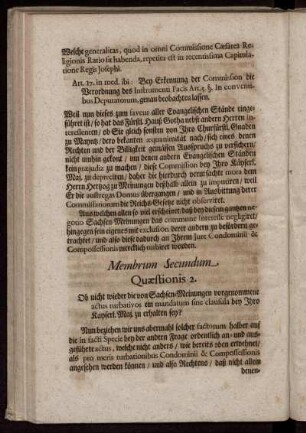 Welche generalitas, quod in omni Commissione Cæsarea Re-
ligionis Ratio sit habenda, repetita est in recentissima Capitula-
tione Regis Josephi.
Art. 17. in med. ibi: Bey Erkennung der Commission die
Verordnung des Instrumenti Pacis Art. 5. §. In conventi-
bus Deputatorum, genau beobachten lassen.
Weil nun dieses zum faveur aller Evangelischen Stände einge-
führet ist / so hat das Fürstl. Hauß Gotha nebst andern Herren in-
tercedenten / ob Sie gleich sonsten von Ihro Churfürstl. Gnaden
zu Mayntz / dero bekanter æquanimität nach / sich eines denen
Rechten und der Billigkeit gemässen Ausspruchs zu versichern /
nicht umhin gekont / um denen andern Evangelischen Ständen
kein præjudiz zu machen / diese Commission bey Ihro Käyserl.
Maj. zu depreciren / dabey die hierdurch verursachte mora dem
Herrn Hertzog zu Meinungen deßhalb allein zu imputiren / weil
Er die austregas Domus übergangen / und in Auswerung derer
Commissariorum die Reichs-Gesetze nicht observiret.
Aus welchen allen so viel erscheinet / daß bey diesem gantzen ne-
gotio Sachsen Meinungen das commune interesse negligiret /
hingegen sein eigenes mit exclusion derer andern zu befördern ge-
trachtet / und also diese dadurch an Ihrem Jure Condominii &
Compossessionis wercklich turbiret worden.
Membrum Secundum
Quæstionis 2.
Ob nicht wieder die von Sachsen-Meinungen vorgenommene
actus turbativos ein mandatum sine clausula bey Ihro
Kayserl. Maj. zu erhalten sey?
Nun beziehen wir uns abermahl solcher factorum halber auf
die in facti Specie bey der andern Frage ordentlich an- und aus-
geführte actus, welche nicht anders / wie bereits oben erwehnet /
als pro meris turbationibus Condominii & Compossessionis
angesehen werden können / und also Rechtens / daß nicht allein
denen-